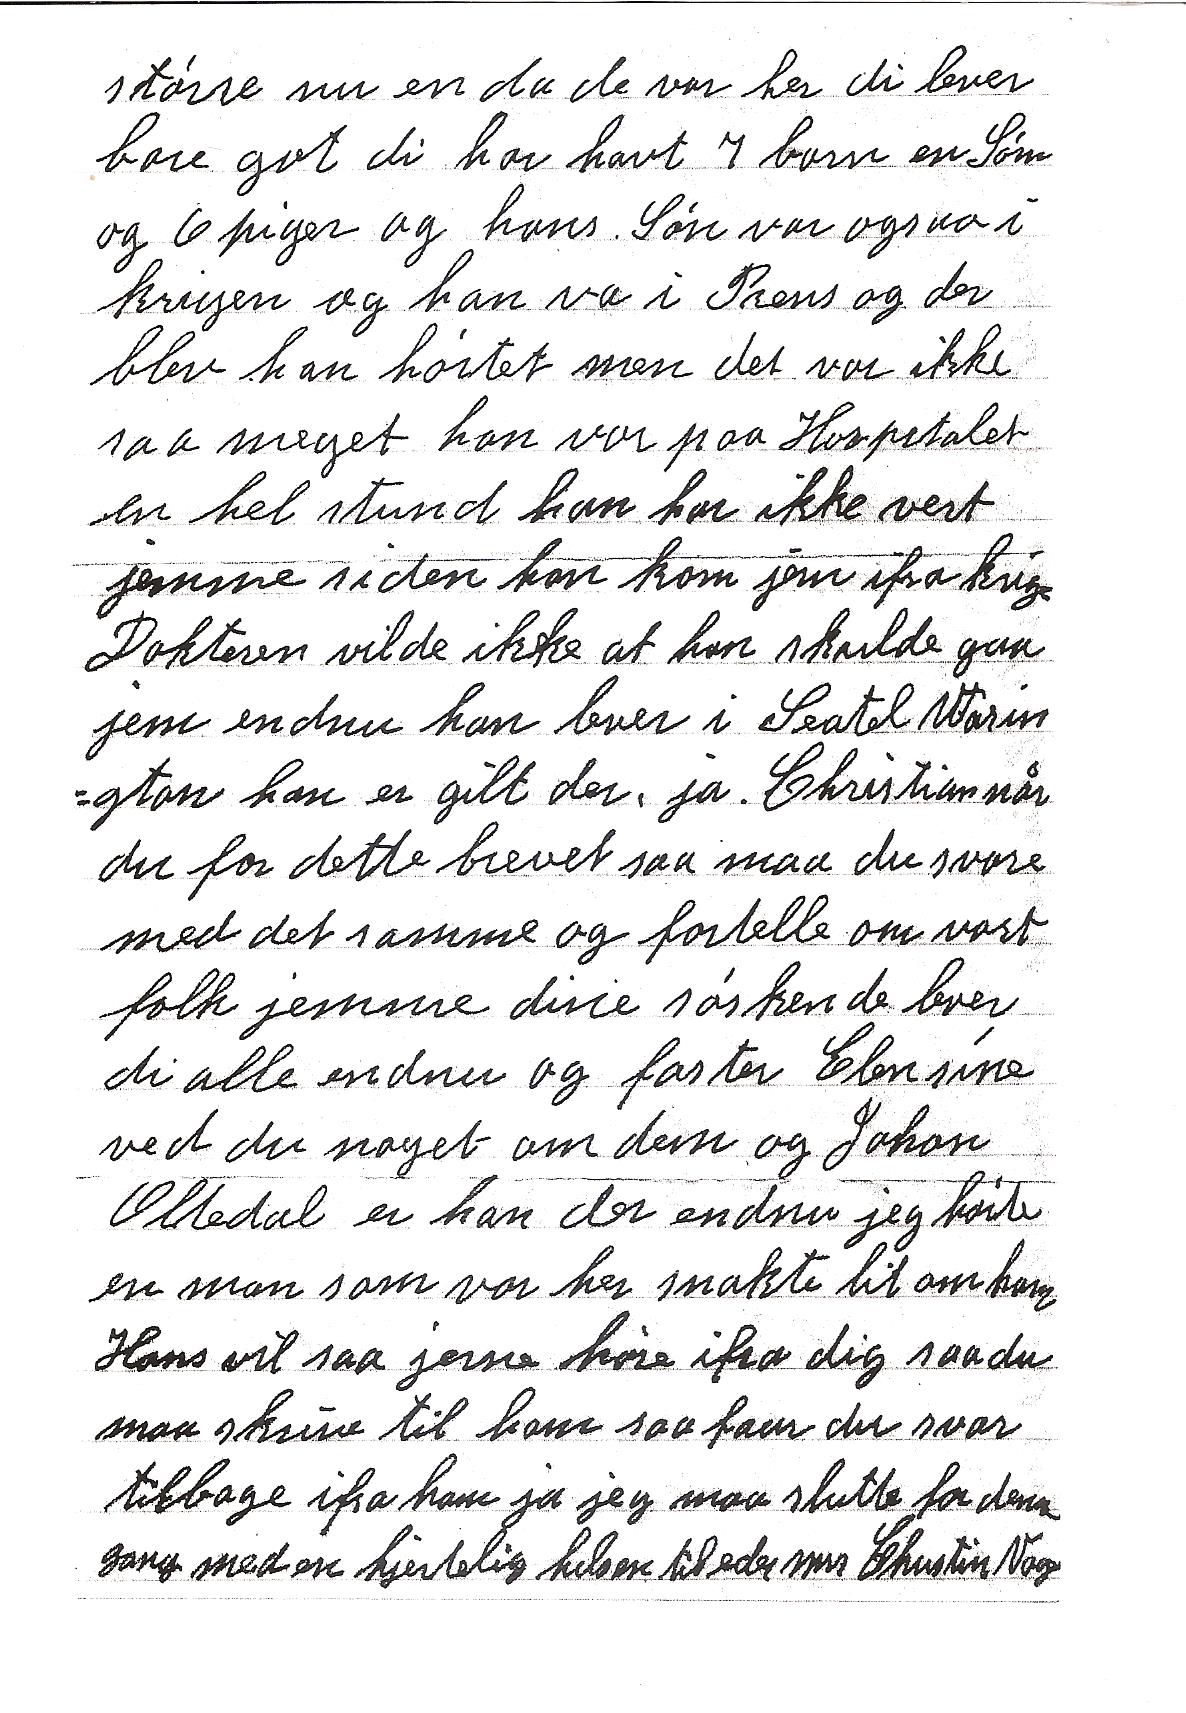 større nu en da de var her di lever
bare got di har havt 7 barn en Søn
og 6 piger og hans. Søn var ogsaa i
krigen og han va i Prens og der
blev han hórtet men det var ikke
saa meget han var paa Hospetalet
en hel stund han har ikke vert
jemme siden han kom jem ifra krig
Dokteren vilde ikke at han skulde gaa
jem endnu han lever i Seatel Wasin
=gton han er gilt der. ja. Christian når
du for dette brevet saa maa du svare
med det samme og fortelle om vort
folk jemme dine søskende lever
di alle endnu og faster Elensine
ved du noget om dem og Johan
Oltedal er han der endnu jeg hørte
en man som var her snakte lit om ham
Hans vil saa jerne høre ifra dig saa du
maa skrive til ham saa faar du svar
tilbage ifra ham ja jeg maa slutte for denn
gang med en hjertelig hilsen til eder mrs Christin Vage